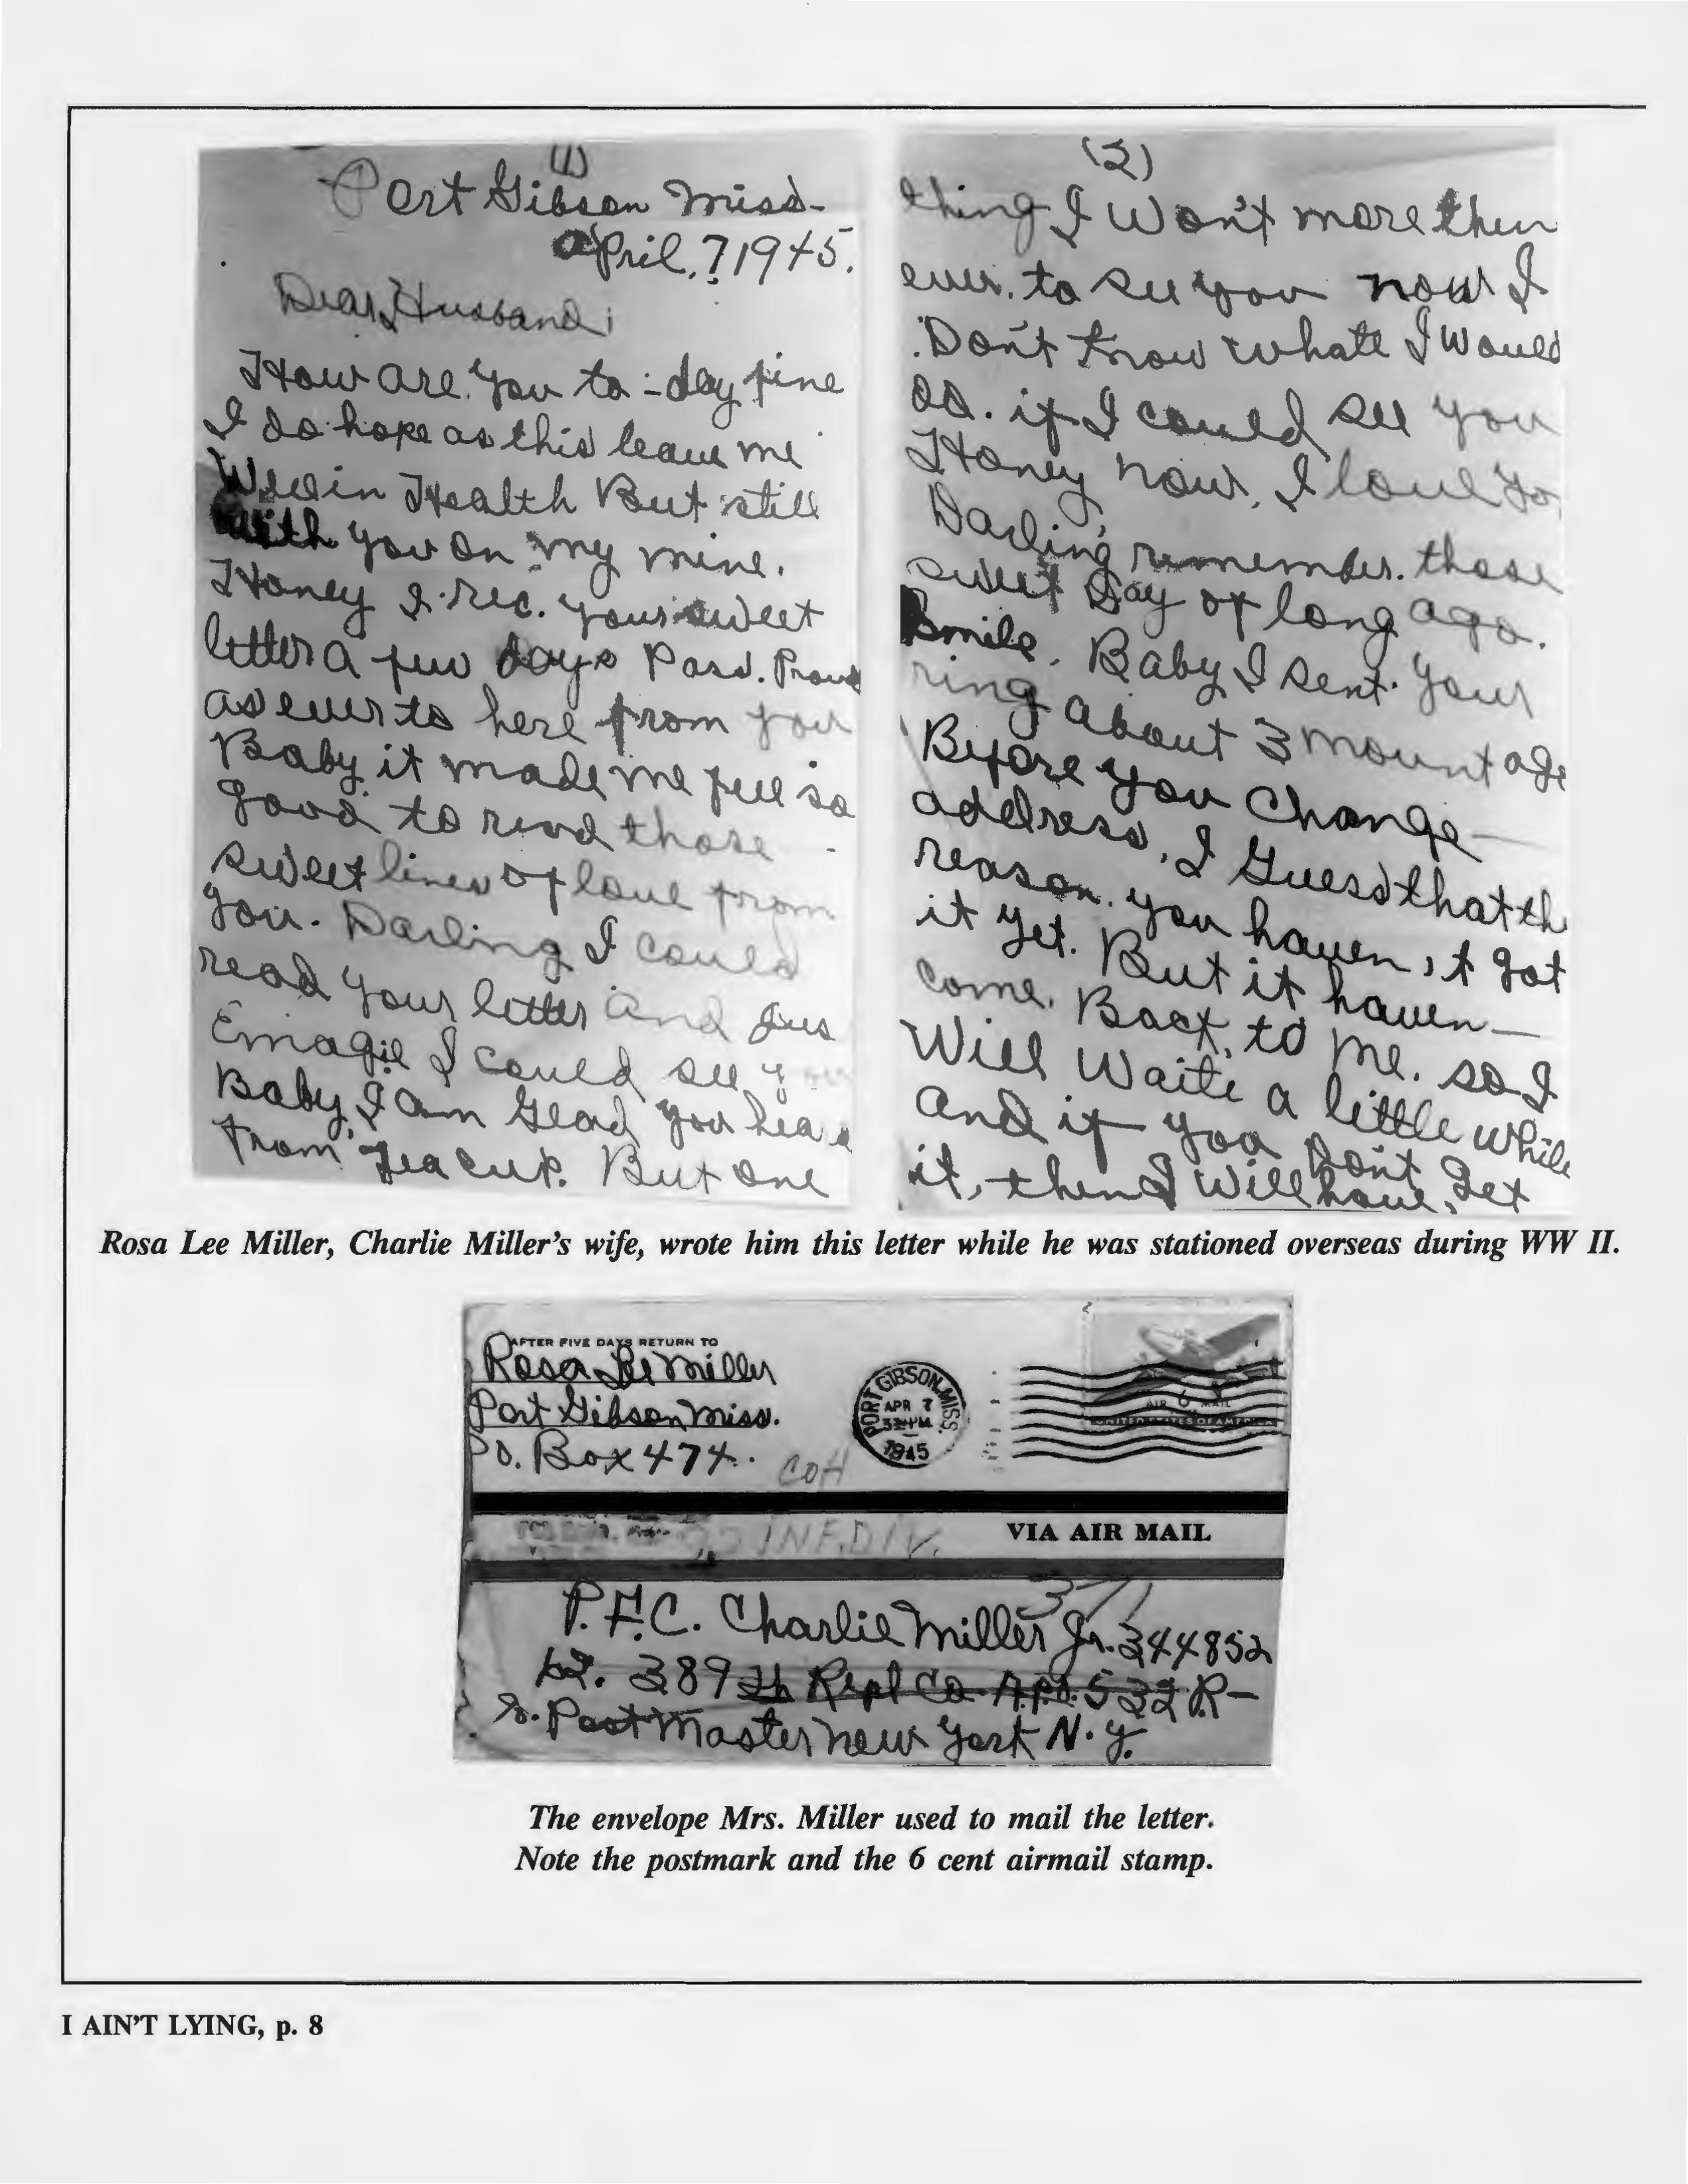 (1)
Port Gibson Miss-
April, 7 1945.
Dear Husband;
How are you to-day fine
I do hope as this leave me
Well in Health But still
with you on my mine.
Honey I rec. your sweet
letter a few days Pass. Proud
as ever to here from you
Baby it made me feel so
good to read those
sweet lines of love from
you. Darling I could
read your letter and Jus
Emagie I could see you
Baby, I am Glad you hear
from Teacup. But one
(2)
thing I Won't more then
ever. to see you now I
Don't Know whate I Would
do. if I could see you
Honey now, I love yo
Darling remember. those
sweet Day of long ago.
Smile. Baby I sent your
ring about 3 mount ago
Before you Change
address, I Guess that th
reason. you haven,t got
it yet. But it haven
come. Back, to me. so I
Will Waite a little while
And if you Don't Get
it, then I Will have, Get
Rosa Lee Miller, Charlie Miller's wife, wrote him this letter while he was stationed overseas during WW II.
AFTER FIVE DAYS RETURN TO
Rosa Lee Miller
Port Gibson Miss.
P.O. Box 474.
COH
PORT GIBSON, MISS.
APR 7
PM
1945
AIR 6¢ MAIL
UNITED STATES OF AMERICA
INF. DIV.
VIA AIR MAIL
371
P.F.C. Charlie Miller Jr. 344852
389 th Repl Co. A.P.O. 532 R-
Post Master New York N.Y.
The envelope Mrs. Miller used to mail the letter.
Note the postmark and the 6 cent airmail stamp.
I AIN'T LYING, p. 8